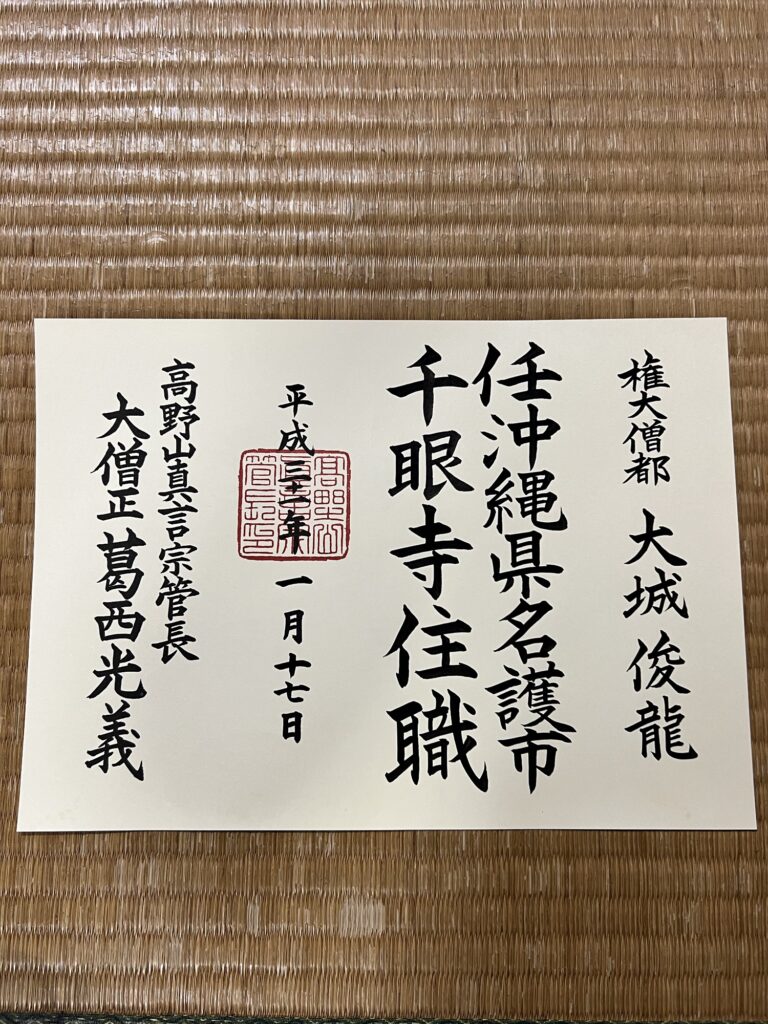 権大僧都 大城俊龍
任沖縄県名護市
千眼寺住職
平成三十一年一月十七日
高野山真言宗管長
大僧正 葛西光義